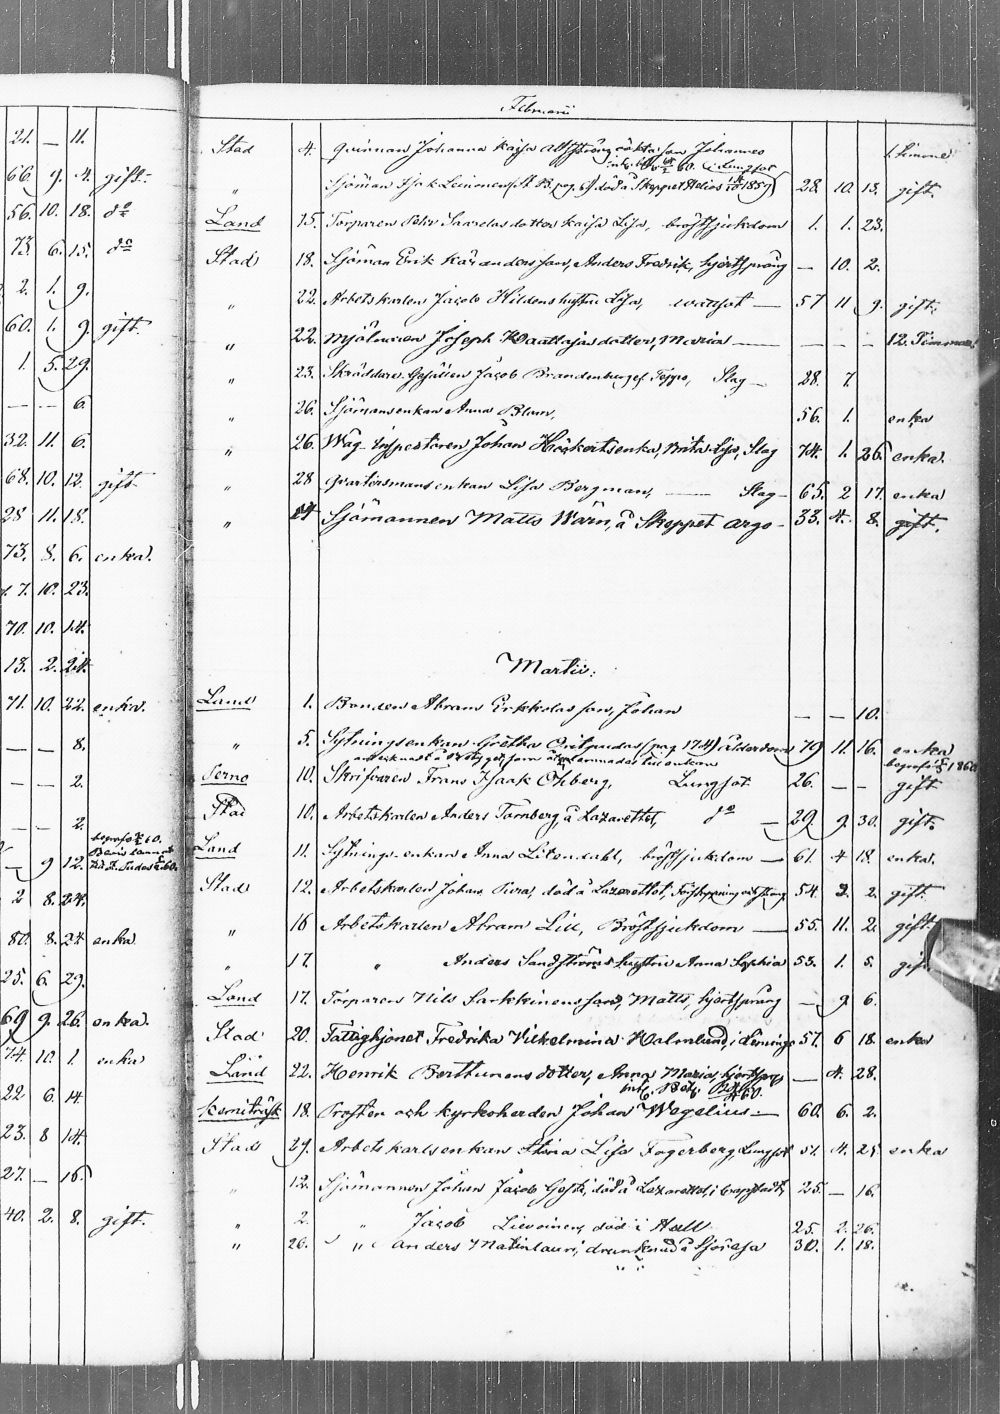 21. — 11.
66 9. 4. gift.
56. 10. 18. do
73 6. 15. do
2. 1. 9.
60. 1. 9. gift.
1. 5. 29.
— — 6.
32. 11. 6.
68. 10. 12. gift.
28 11. 18.
73. 8. 6. enka.
7. 10. 23.
70. 10. 14.
13. 2. 24.
71. 10. 22. enka.
— — 8.
— — 2.
— — 2.
— 9 12.
2 8. 24.
80. 8. 24 enka
25. 6. 29.
69 9. 26. enka.
74. 10. 1. enka
22 6. 14
23. 8 14.
27. — 16.
40. 2. 8. gift.
Februarii
Stad 4. Quinnan Johanna Kaisa son Johannes 1. Timme
" Sjöman Isak Leinonen död å Skeppet Helios 1859 28. 10. 13. gift.
Land 15. Torparen Pehr Saarelas dotter Kaisa Lisa, bröstsjukdom 1. 1. 23.
Stad 18. Sjöman Erik Käranders son, Anders Fredrik, hjertsprång — 10. 2.
" 22. Arbetskarlen Jacob Hildens hustru Lisa, wattsot — 57 11 9. gift.
" 22. Mjölnaren Joseph Kaattajas dotter, Maria — — — — 12. Timmar
" 23. Skräddare Gesällen Jacob Brandenburgs Seppo, Slag — 28. 7
" 26. Sjömansenkan Anna Blom, 56. 1. enka
" 26. Wåg-Inspectoren Johan Höckerts enka, Brita Lisa, Slag 74. 1. 26. enka.
" 28 Qvartersmans enkan Lisa Bergman, — Slag — 65. 2 17. enka
" Sjömannen Matts Wärn, å Skeppet Argo — 33. 4. 8. gift.
Martii.
Land 1. Bonden Abram Erkkolas son, Johan — — 10.
" 5. Sytningsenkan Gretha (pag 174) ålderdom 79 11. 16. enka
Perno 10. Skrifvaren Frans Isaak Öhberg, Lungsot 26. — — gift
Stad 10. Arbetskarlen Anders Tornberg, å Lazarettet, do — 29 9 30. gift.
Land 11. Sytnings-enkan Anna Litendahl, bröstsjukdom — 61. 4 18. enka.
Stad 12. Arbetskarlen Johan död å Lazarettet, 54. 3. 2. gift.
" 16 Arbetskarlen Abram Lill, Bröstsjukdom — 55. 11. 2. gift.
" 17. " Anders Sandströms hustru Anna Sophia 53. 1. 5. gift
Land 17. Torparen Nils Sarkkinens son, Matts, hjertsprång — 9 6.
Stad 20. Fattighjonet Fredrika Vilhelmina Holmlund, i Liminga 57. 6 18. enka
Land 22. Henrik Berttunens dotter, Anna Maria, hjertsprg — 4. 28.
Kemiträsk 18. Prosten och kyrkoherden Johan Wegelius — 60. 6. 2.
Stad 29. Arbetskarlsenkan Lisa Fogerberg Lungsot 51. 4. 25 enka
" 12. Sjömannen Johan Jacob död å Lazarettet, i Cronstadt, 25. — 16.
" 2. " Jacob Lievoinen, död i Hull 25. 2. 26.
" 26. " Anders Matinlauri, drunknad å Sjöresa 30. 1. 18.